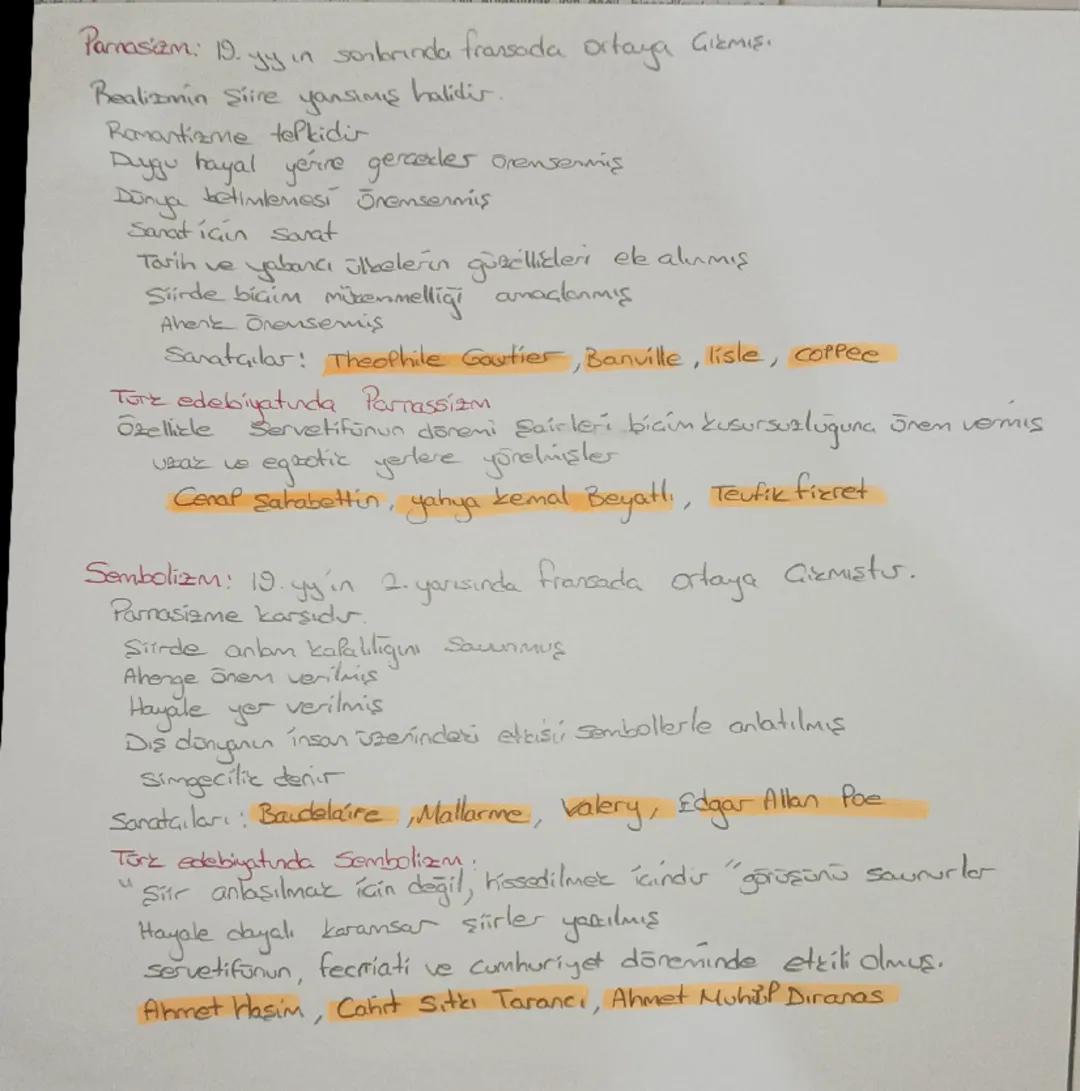 Parnasizm: 19. yy ın sonlarında fransada ortaya Çıkmış.
Realizmin Şiire yansımış halidir.
Romantizme tepkidir
Duygu hayal yerine gerçekler önemsenmiş
Dünya betimlemesi Önemsenmiş
Sanat için sanat
Tarih ve yabancı ülkelerin güzellikleri ele alınmış
Şiirde biçim mükemmelliği amaçlanmış
Ahenk Önemsenmiş
Sanatçılar: Theophile Gautier, Banville, lisle, coppee
Türk edebiyatında Parnassizm
Özellikle Servetifünun dönemi şairleri biçim kusursuzluğuna önem vermiş
uzak ve egzotik yerlere yönelmişler
Cenap Şahabettin, yahya kemal Beyatlı, Tevfik fikret
Sembolizm: 19. yy'ın 2. yarısında fransada ortaya Çıkmıştır.
Parnasizme karşıdır.
Şiirde anlam kapalılığını Savunmuş
Ahenge önem verilmiş
Hayale yer verilmiş
Dış dünyanın insan üzerindeki etkisi sembollerle anlatılmış
Simgecilik denir
Sanatçıları: Baudelaire, Mallarme, Valery, Edgar Allan Poe
Türk edebiyatında Sembolizm:
"Şiir anlaşılmak için değil, hissedilmek içindir" görüşünü savunurlar
Hayale dayalı karamsar şiirler yazılmış
servetifünun, fecriati ve cumhuriyet döneminde etkili olmuş.
Ahmet Haşim, Cahit Sıtkı Tarancı, Ahmet Muhip Dıranas